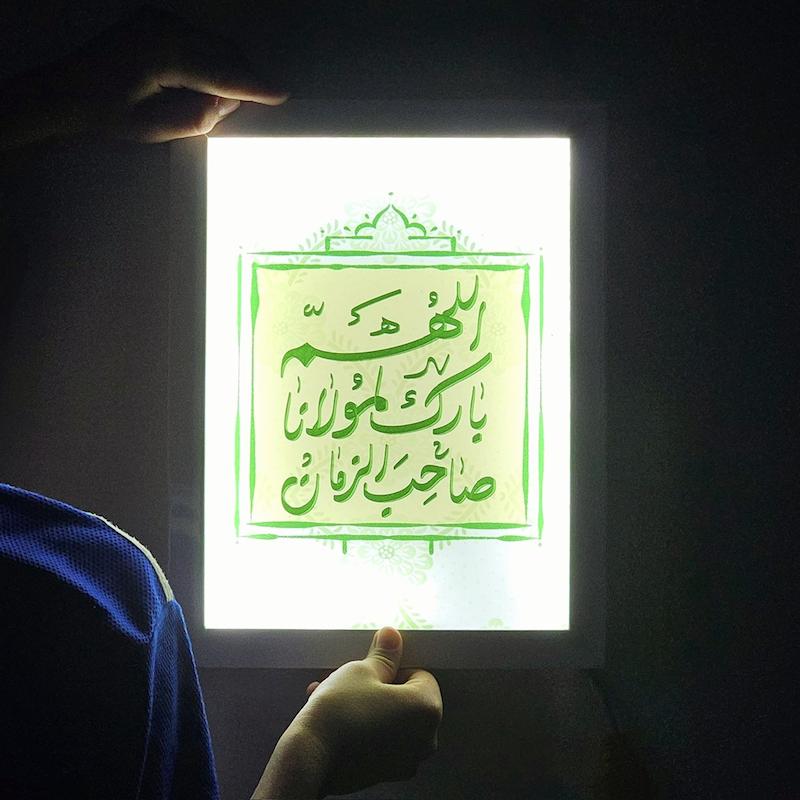 اللهُمَّ
بارك لمولانا
صاحِبَ الزمان